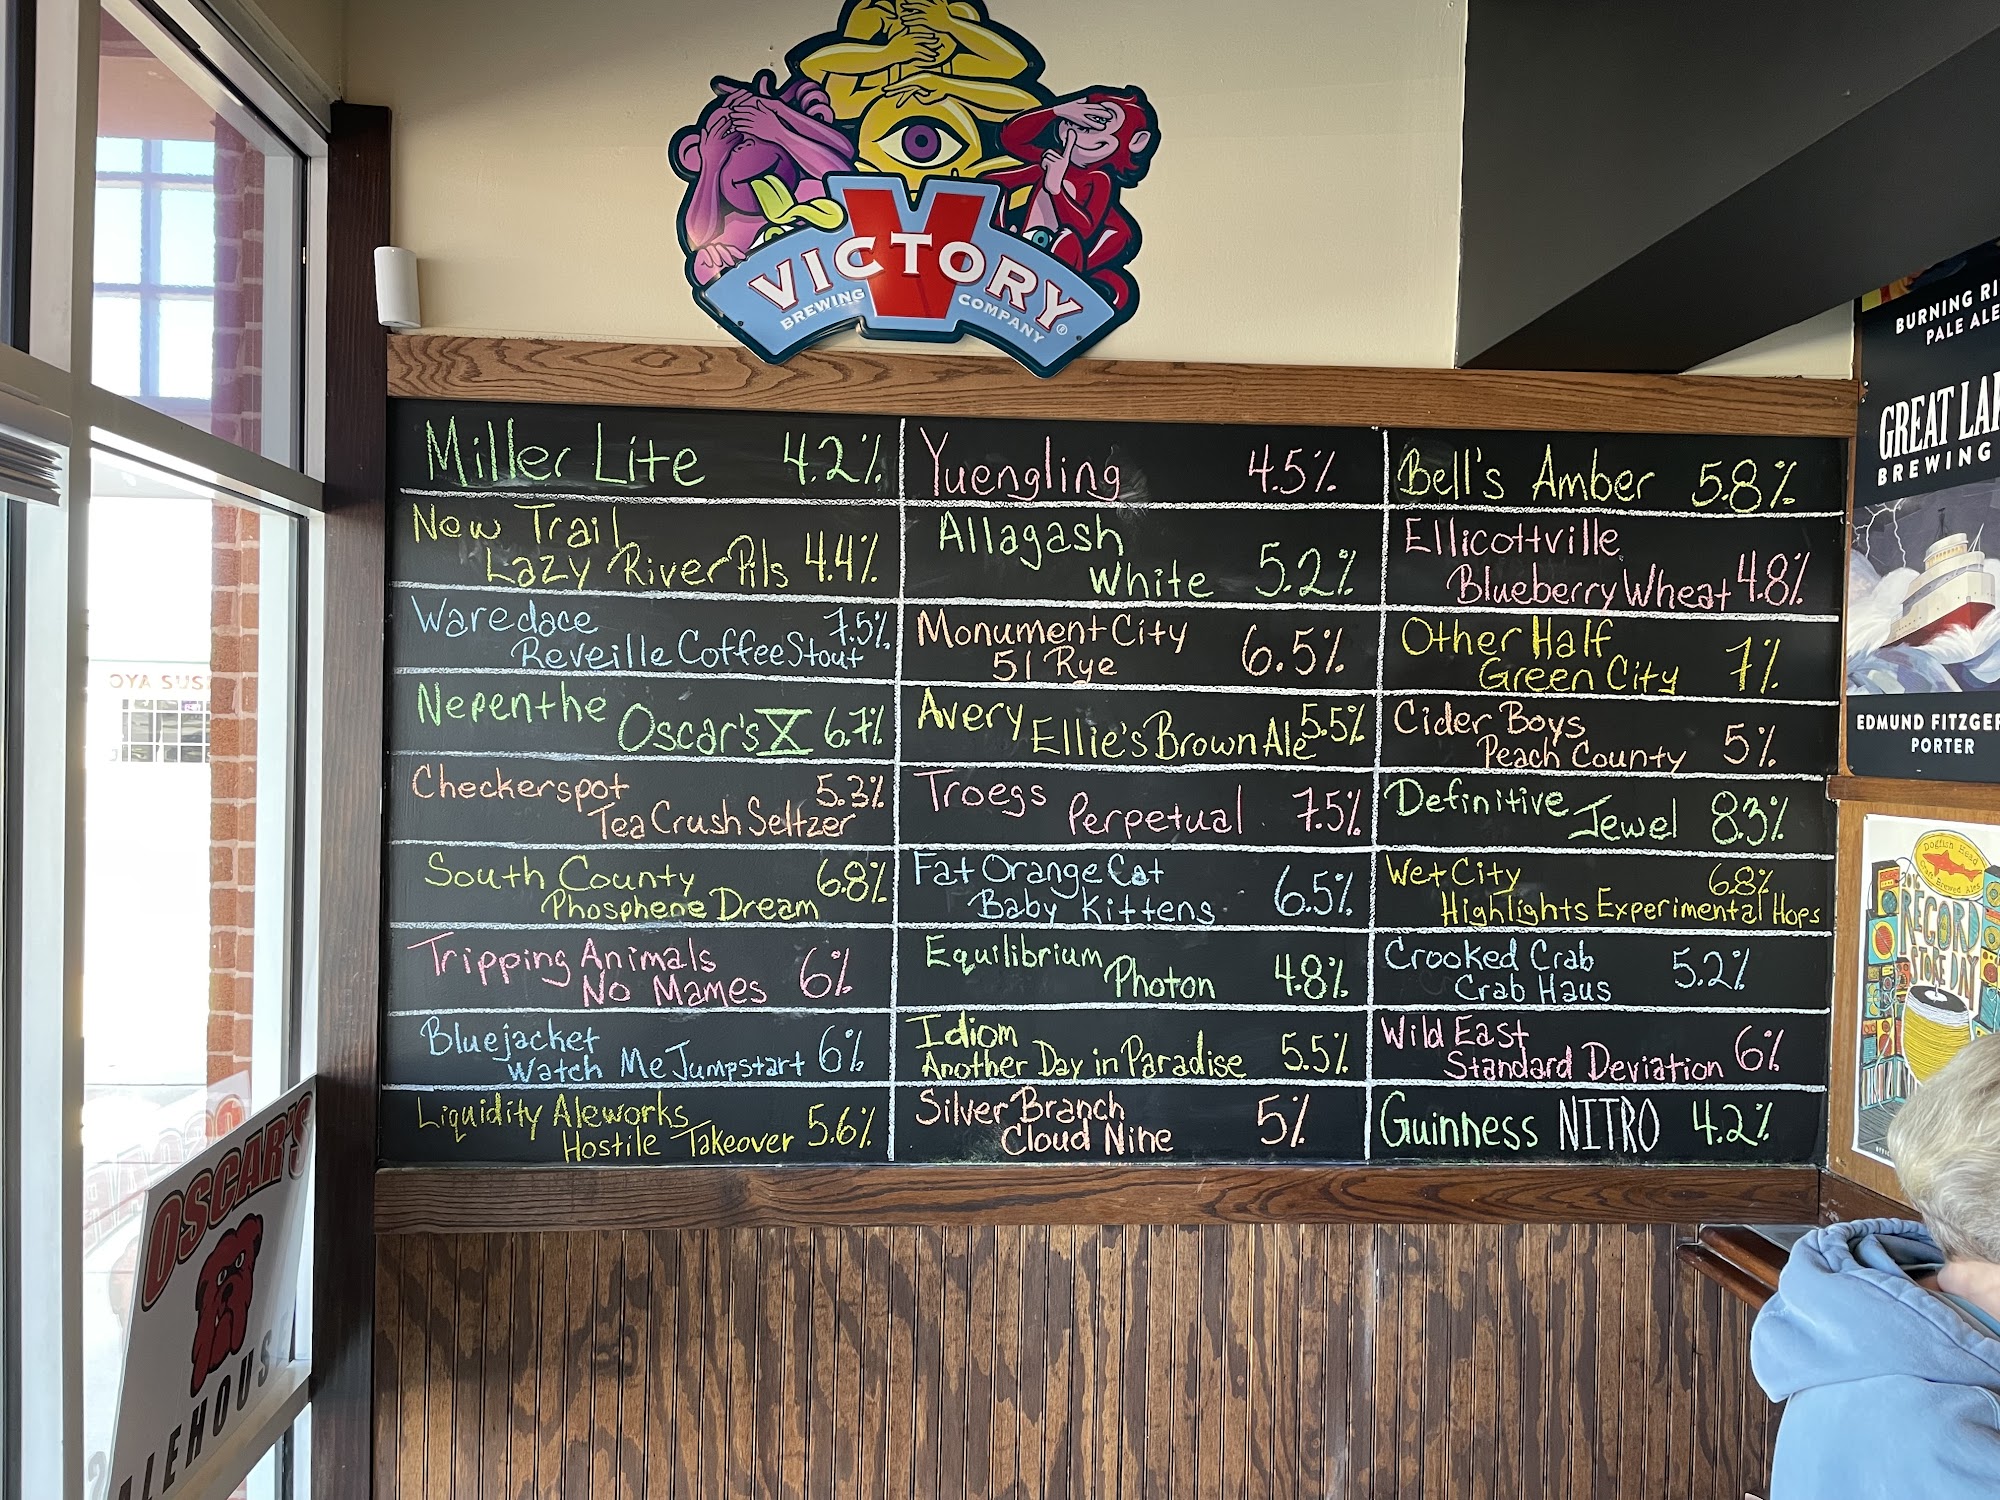 VICTORY
BREWING COMPANY®
Miller Lite 4.2%
New Trail
Lazy River Pils 4.4%
Waredaca 7.5%
Reveille Coffee Stout
Nepenthe Oscar's X 6.7%
Checkerspot 5.3%
Tea Crush Seltzer
South County 6.8%
Phosphene Dream
Tripping Animals
No Mames 6%
Bluejacket
Watch Me Jumpstart 6%
Liquidity Aleworks
Hostile Takeover 5.6%
Yuengling 4.5%
Allagash
White 5.2%
Monument City
51 Rye 6.5%
Avery Ellie's Brown Ale 5.5%
Troegs Perpetual 7.5%
Fat Orange Cat
Baby Kittens 6.5%
Equilibrium Photon 4.8%
Idiom
Another Day in Paradise 5.5%
Silver Branch
Cloud Nine 5%
Bell's Amber 5.8%
Ellicottville
Blueberry Wheat 4.8%
Other Half
Green City 7%
Cider Boys
Peach County 5%
Definitive Jewel 8.3%
Wet City 6.8%
Highlights Experimental Hops
Crooked Crab
Crab Haus 5.2%
Wild East
Standard Deviation 6%
Guinness NITRO 4.2%
BURNING RI
PALE ALE
GREAT LAK
BREWING
EDMUND FITZGER
PORTER
Dogfish Head
Craft Brewed Ales
RECORD
STORE DAY
OSCAR'S
ALEHOUS